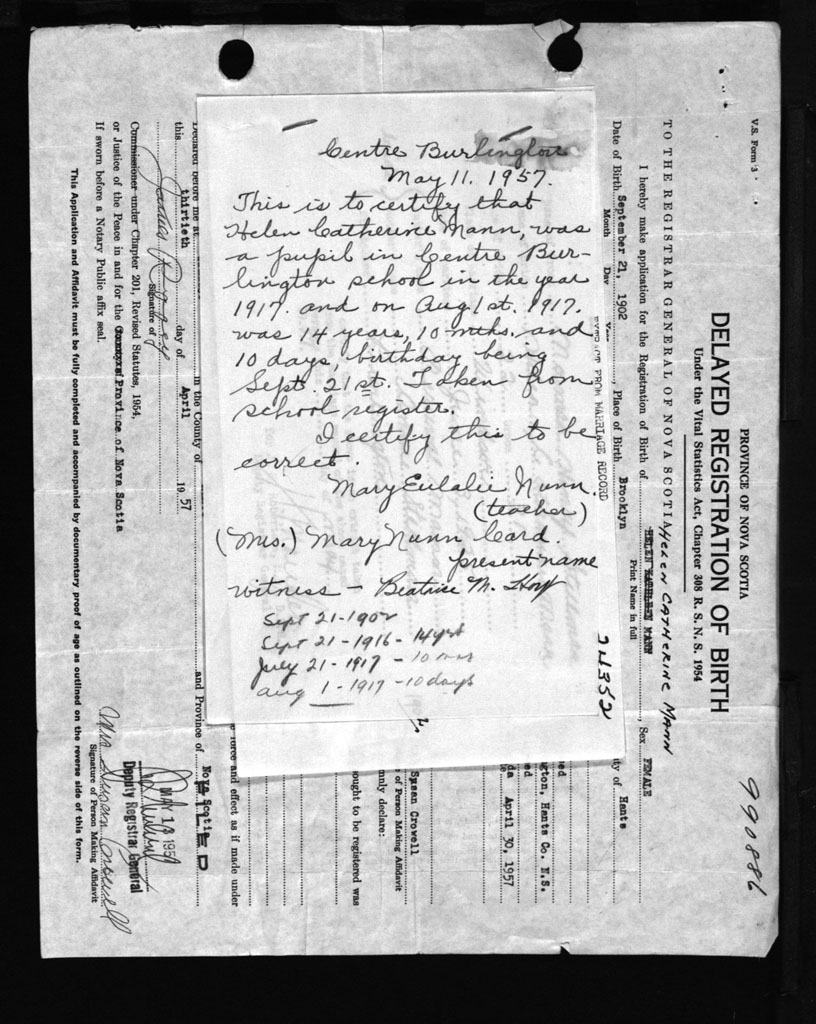 Centre Burlington
May 11, 1957.
This is to certify that
Helen Catherine Mann, was
a pupil in Centre Bur-
lington school in the year
1917. and on Aug 1st. 1917.
was 14 years, 10 mths. and
10 days, birthday being
Sept. 21st. Taken from
school register.
I certify this to be
correct.
Mary Eulalie Nunn.
(teacher)
(Mrs.) Mary Nunn Card.
present name
witness – Beatrice M.
Sept 21-1902
Sept 21-1916-14yrs
July 21-1917-10 mos
Aug 1-1917-10 days
990886
V.S. Form 3
PROVINCE OF NOVA SCOTIA
DELAYED REGISTRATION OF BIRTH
Under the Vital Statistics Act, Chapter 308 R. S. N. S. 1954
TO THE REGISTRAR GENERAL OF NOVA SCOTIA
HELEN CATHERINE MANN
I hereby make application for the Registration of Birth of HELEN KATHLEEN MANN, Sex FEMALE
Print Name in full
Date of Birth September 21, 1902, Place of Birth Brooklyn ty of Hants
Month Day Year
EXTRACT FROM MARRIAGE RECORD
24352
ed
gton, Hants Co. N.S.
ed
da April 30, 1957
Susan Crowell
of Person Making Affidavit
mnly declare:
ought to be registered was
force and effect as if made under
Declared before me at in the County of and Province of Nova Scotia
this thirtieth day of April 1957
FILED
MAY 1 1957
Deputy Registrar General
Signature of
Commissioner under Chapter 201, Revised Statutes, 1954,
or Justice of the Peace in and for the Province of Nova Scotia
If sworn before a Notary Public affix seal.
Mrs Susan Crowell
Signature of Person Making Affidavit
This Application and Affidavit must be fully completed and accompanied by documentary proof of age as outlined on the reverse side of this form.